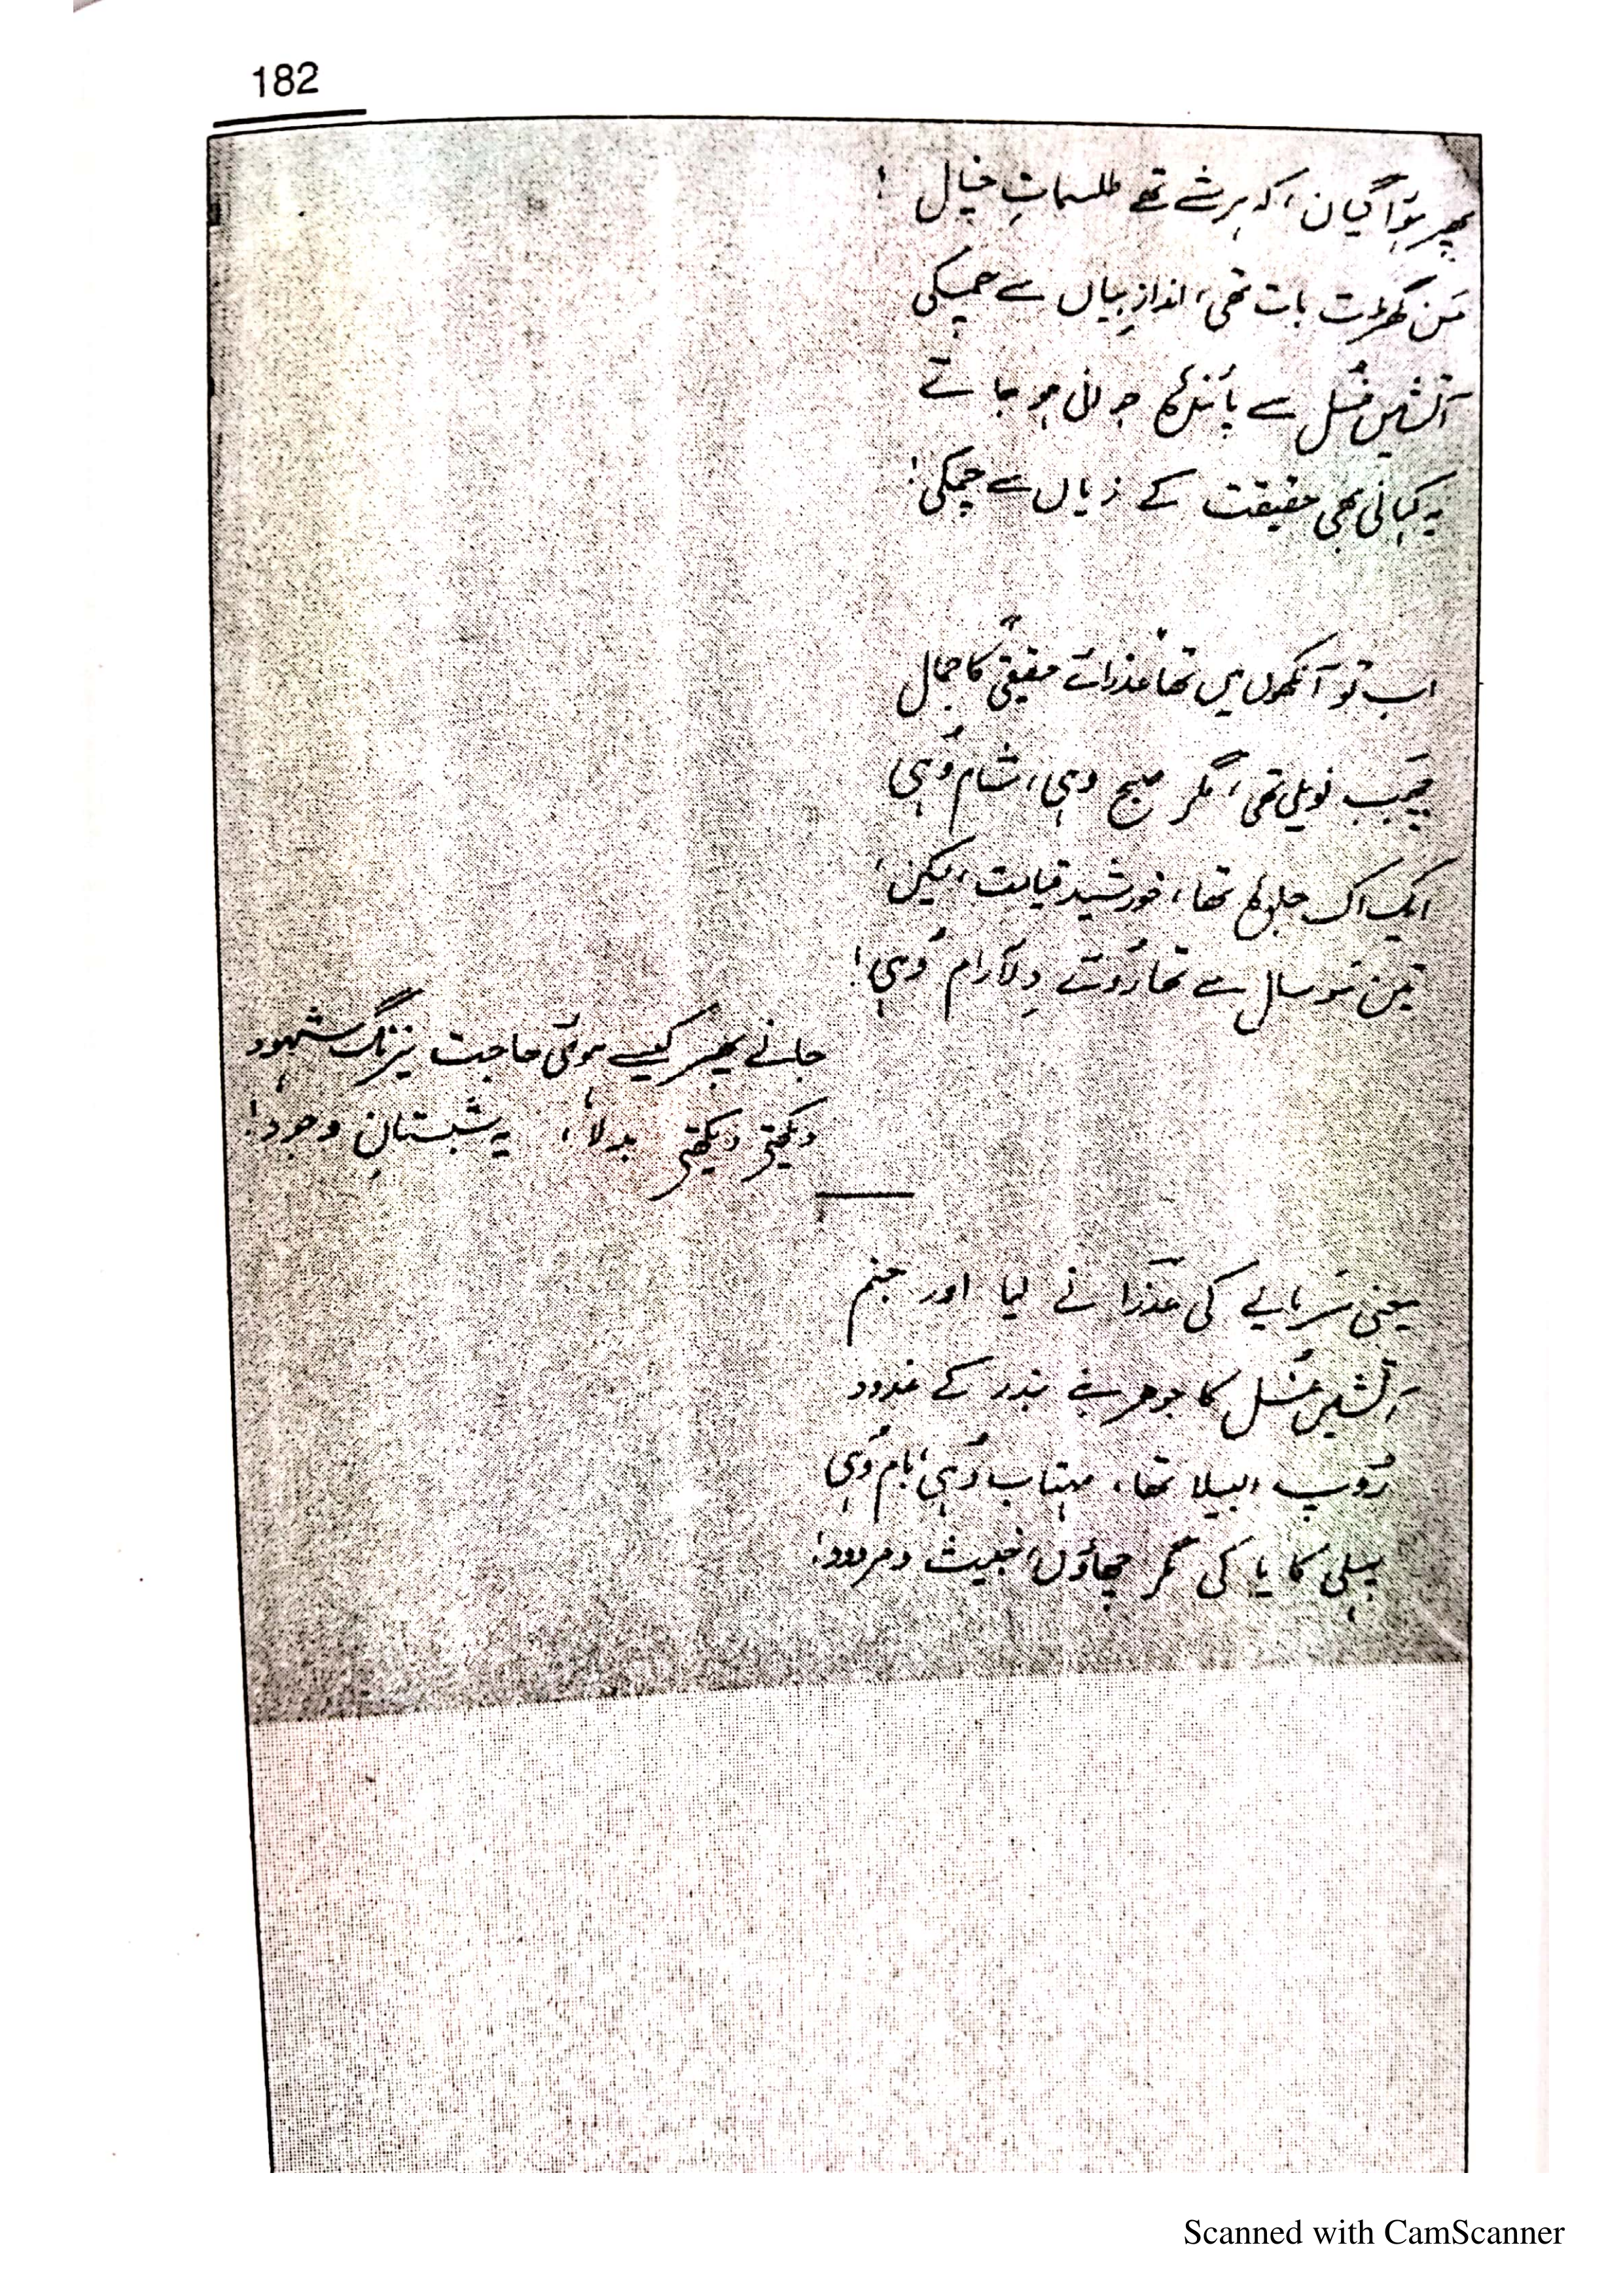 182
پھر ہوا گیان، کہ ہر شے تھے طلسماتِ خیال!
مَن گھڑت بات تھی، اندازِ بیاں سے چمکی
آتشیں غُسل سے پائندہ جوانی ہو جاتے
یہ کہانی بھی حقیقت کے زیاں سے چمکی!
اب تو آنکھوں میں تھا عذرائے حقیقی کا جمال
چَھب نویلی تھی، مگر صبح وہی، شام وُہی
ایک اک جلوہ تھا، خورشیدِ قیامت، لیکن،
تین سو سال سے تھا رُوئے دِلآرام وُہی!
جانے پھر کیسے ہوئی حاجت نیرنگِ شہود
دیکھتی دیکھتی بدلا، یہ شبستانِ وجود!
یعنی سَرمایے کی عَذرا نے لیا اور جنم
آتشیں غُسل کا جوھر بنے بندر کے غدود
رُوپ البیلا تھا، مہتاب وُہی، بام وُہی
پہلی کایا کی مگر چھاؤں، خبیث و مردود!
Scanned with CamScanner